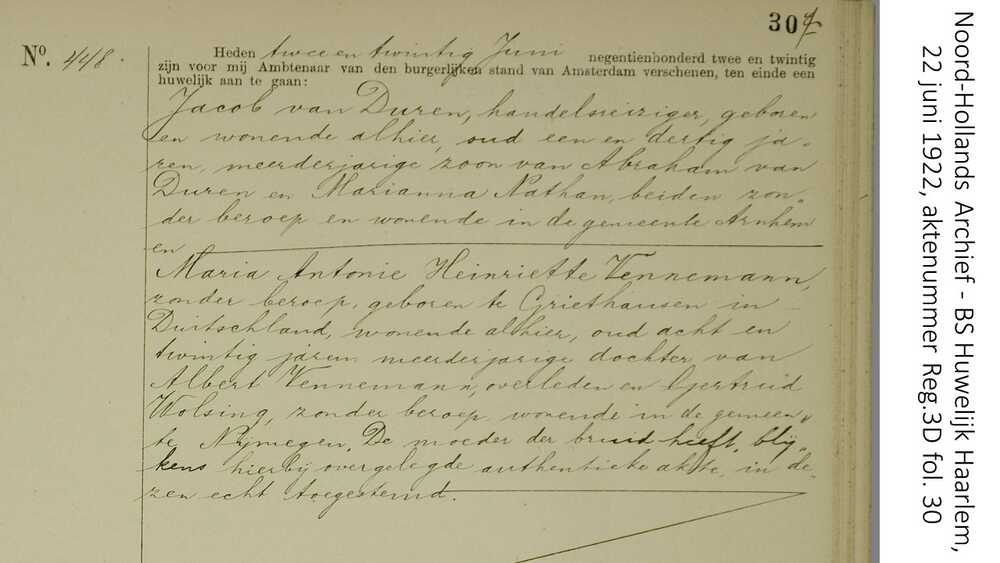 307
No. 448.
Heden twee en twintig Juni negentienhonderd twee en twintig
zijn voor mij Ambtenaar van den burgerlijken stand van Amsterdam verschenen, ten einde een
huwelijk aan te gaan:
Jacob van Duren, handelsreiziger, geboren
en wonende alhier, oud een en dertig ja-
ren, meerderjarige zoon van Abraham van
Duren en Marianna Nathan, beiden zon-
der beroep en wonende in de gemeente Arnhem
en
Maria Antonie Heinriette Vennemann,
zonder beroep, geboren te Griethausen in
Duitschland, wonende alhier, oud acht en
twintig jaren, meerderjarige dochter van
Albert Vennemann, overleden en Gertruid
Wolsing, zonder beroep, wonende in de gemeen-
te Nijmegen. De moeder der bruid heeft, blij-
kens hierbij overgelegde authentieke akte, in de-
zen echt toegestemd.
Noord-Hollands Archief - BS Huwelijk Haarlem,
22 juni 1922, aktenummer Reg.3D fol. 30